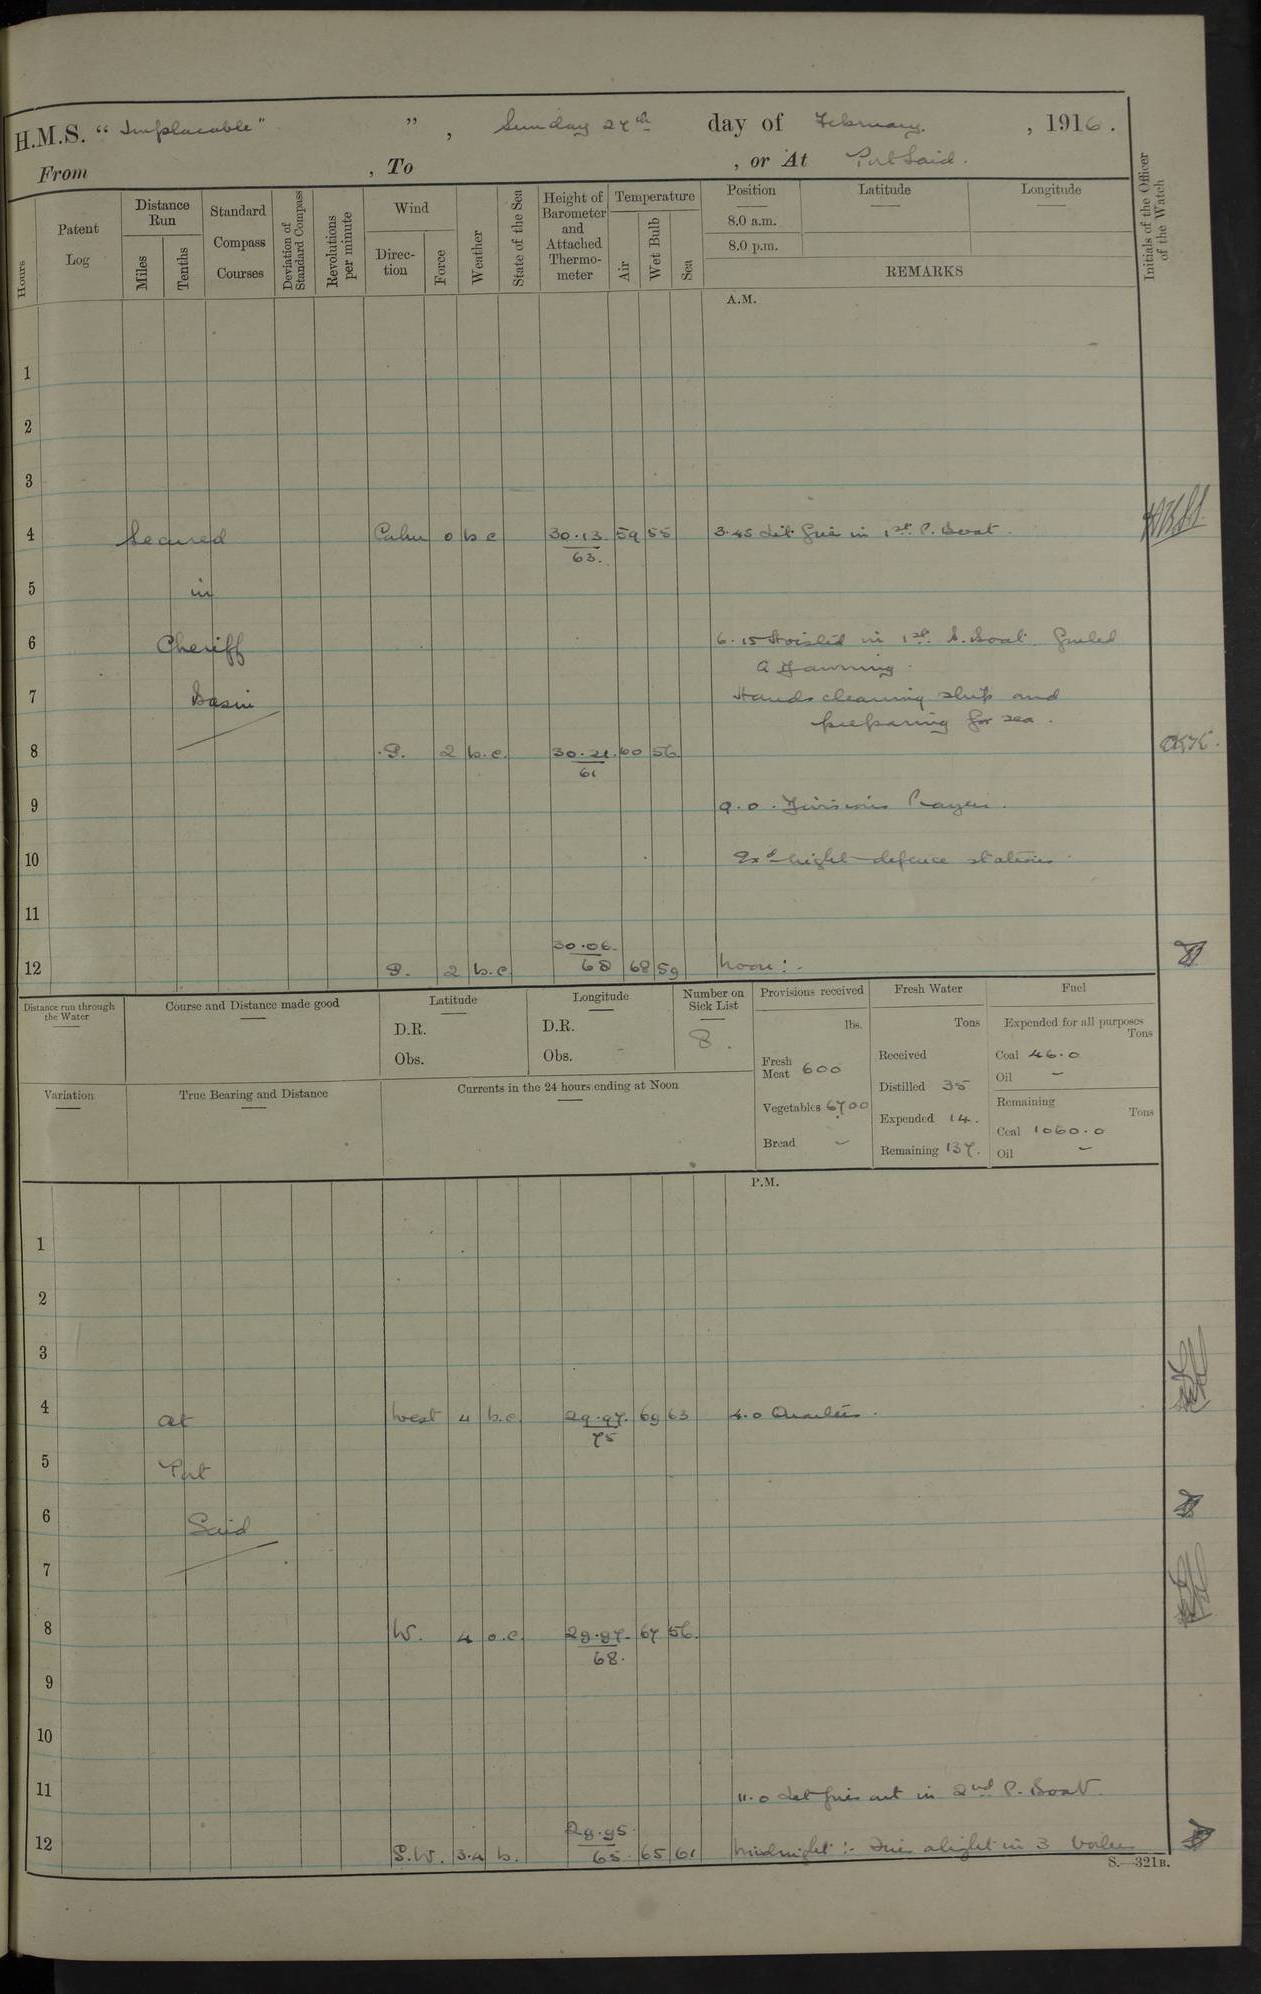 H.M.S. "Implacable" ", Sunday 27th day of February, 1916.
From , To , or At Port Said.
Hours
Patent Log
Distance Run
Miles
Tenths
Standard Compass Courses
Deviation of Standard Compass
Revolutions per minute
Wind
Direction
Force
Weather
State of the Sea
Height of Barometer and Attached Thermometer
Temperature
Air
Wet Bulb
Sea
Position
8.0 a.m.
8.0 p.m.
Latitude
Longitude
REMARKS
Initials of the Officer of the Watch
A.M.
1
2
3
4 Secured Calm 0 b c 30.13 59 55 3.45 Lit fire in 1st P. Boat.
63.
5 in
6 Cheriff 6.15 Hoisted in 1st S. Boat. furled
Q Dawning.
7 Basin Hands cleaning ship and
preparing for sea.
8 S. 2 b.c. 30.21 60 56.
61
9 9.0. Divisions Prayers.
10 Exd night defence stations.
11
30.06.
12 S. 2 b.c 68 68 59 Noon:-
Distance run through the Water
Course and Distance made good
Latitude
D.R.
Obs.
Longitude
D.R.
Obs.
Number on Sick List
8.
Provisions received
lbs.
Fresh Meat 600
Vegetables 6700
Bread –
Fresh Water
Tons
Received
Distilled 35
Expended 14.
Remaining 137.
Fuel
Expended for all purposes
Tons
Coal 46.0
Oil –
Remaining
Tons
Coal 1060.0
Oil –
Variation
True Bearing and Distance
Currents in the 24 hours ending at Noon
P.M.
1
2
3
4 At West 4 b.c. 29.97. 69 63 4.0 Quarters.
75
5 Port
6 Said
7
8 W. 4 o.c. 29.97. 67 56.
68.
9
10
11 11.0 Let fires out in 2nd P. Boat.
29.95.
12 S.W. 3.4 b. 65. 65 61 Midnight:- Fires alight in 3 boilers
S.—321B.